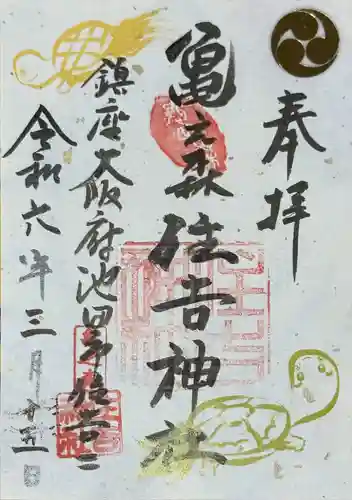 奉拝
亀之森住吉神社
鎮座大阪府池田市住吉二
令和六年三月廿五日